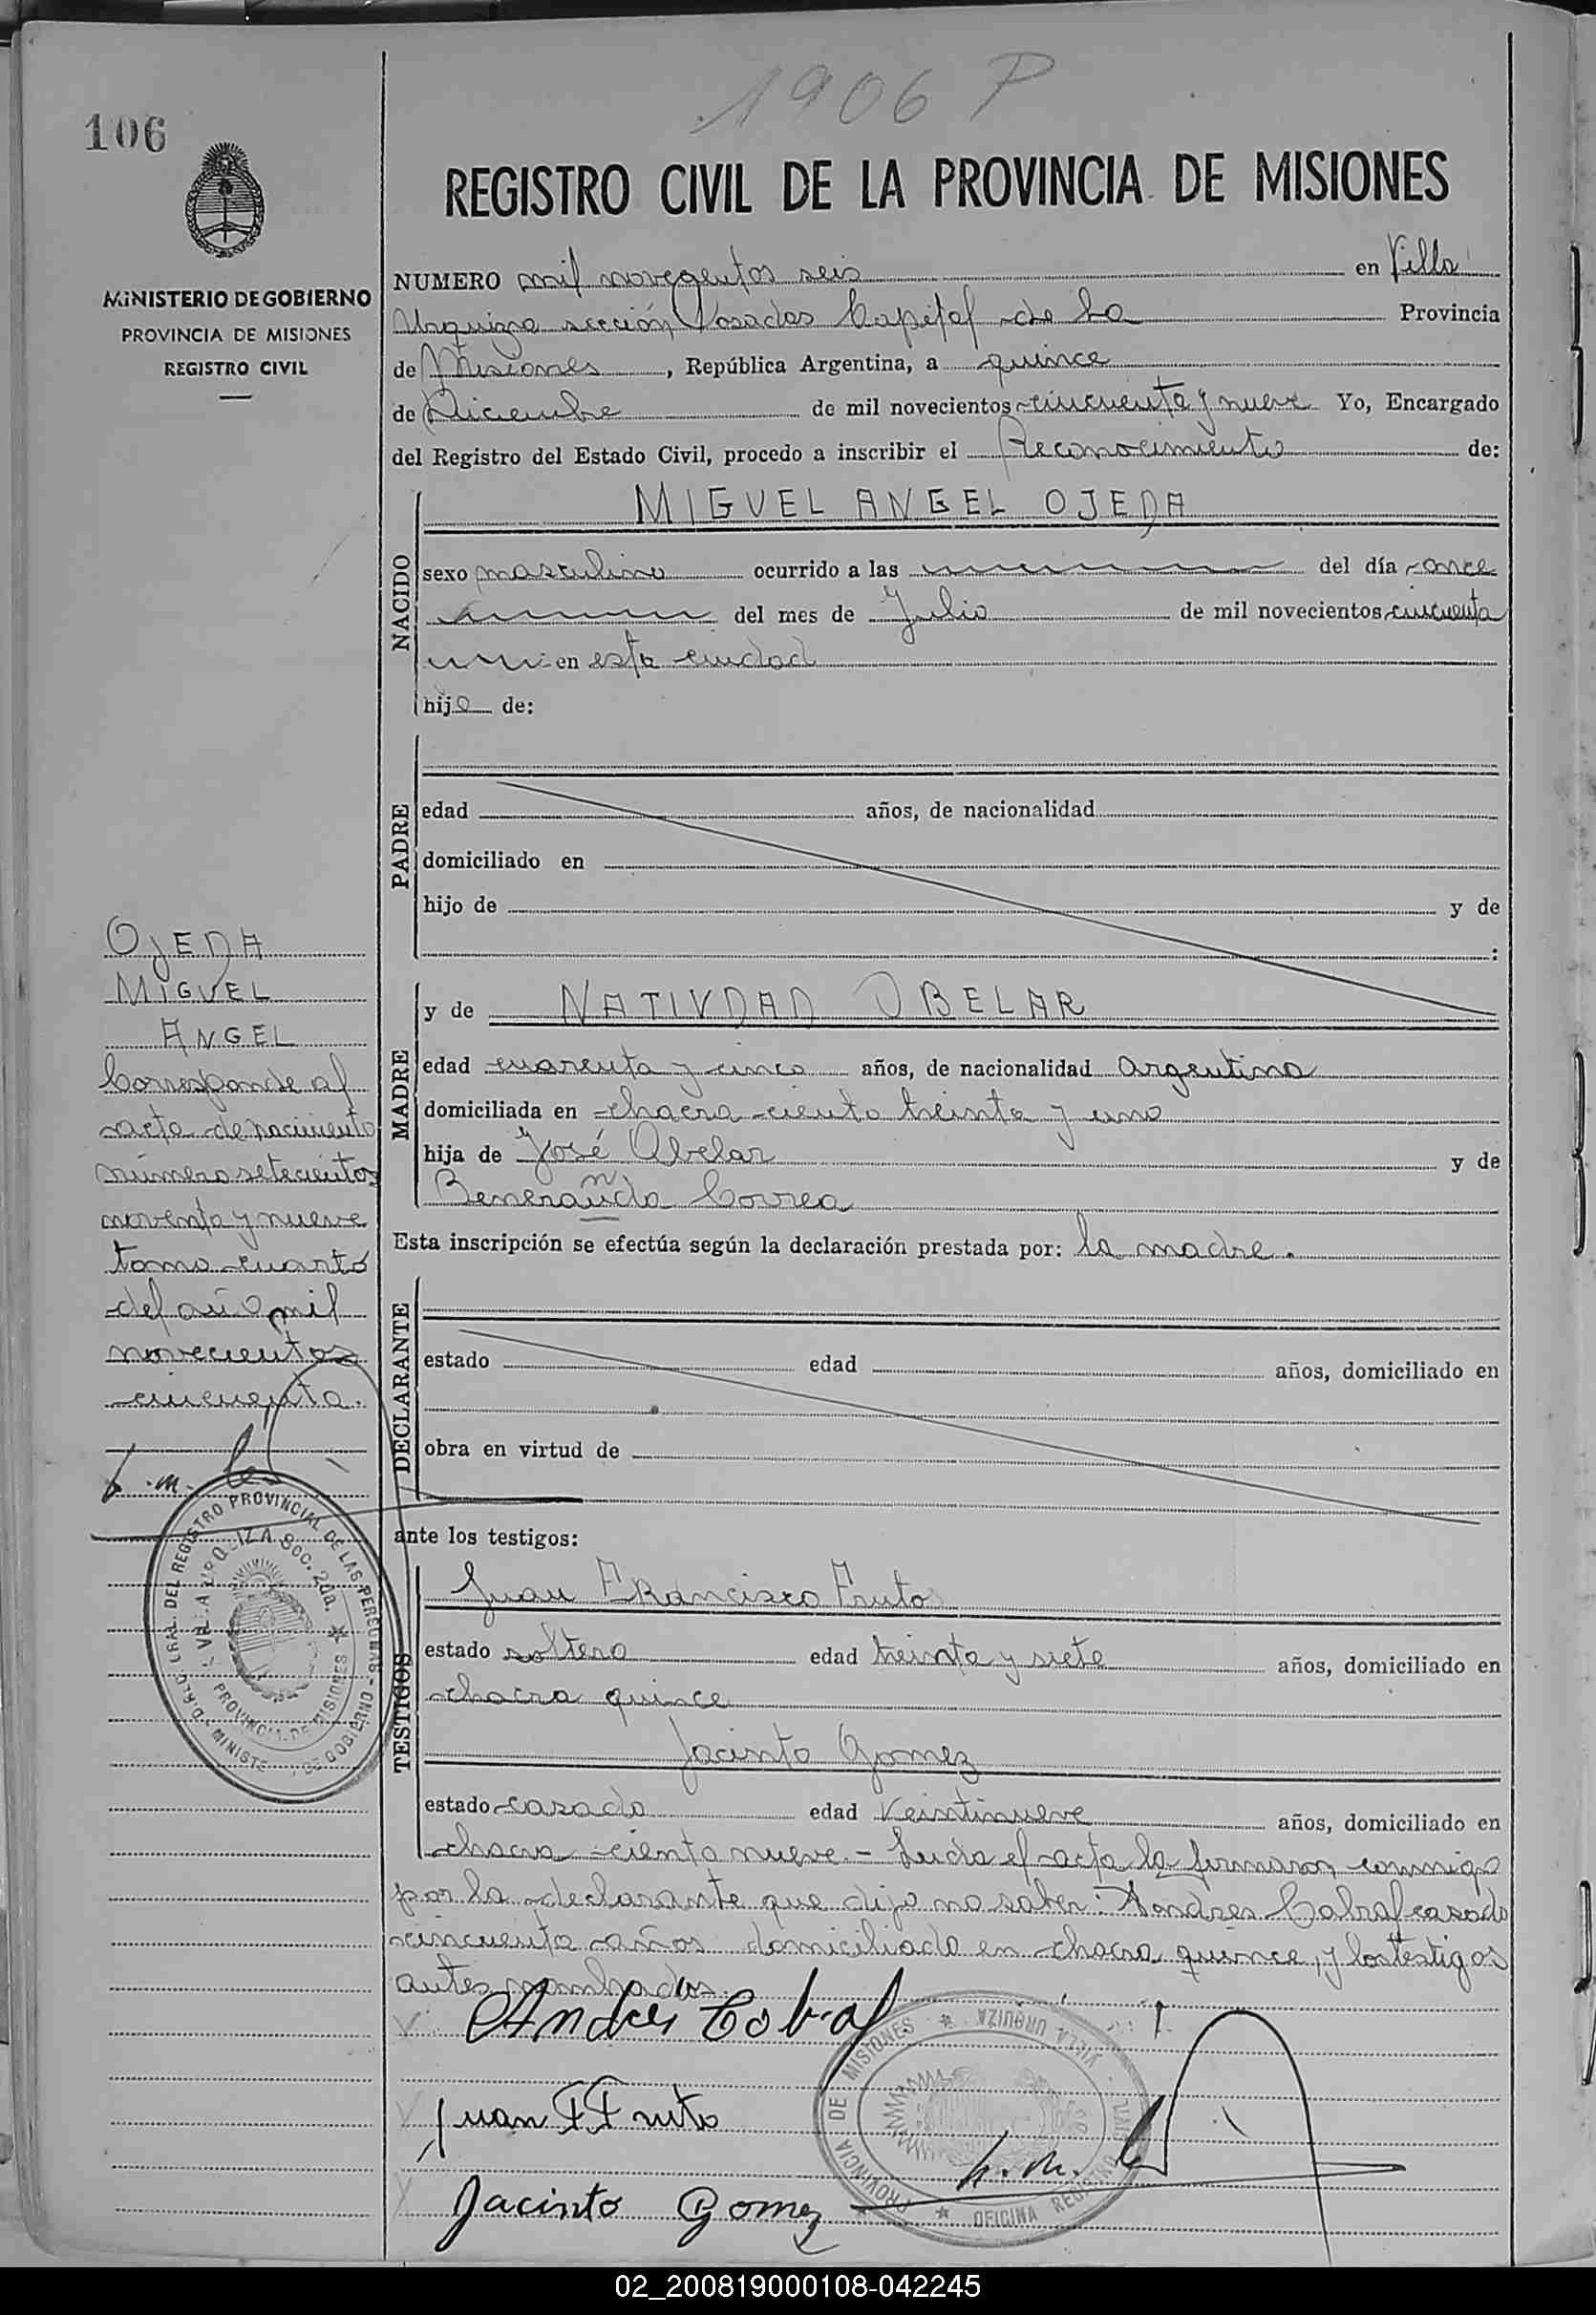 1906 P
106
REGISTRO CIVIL DE LA PROVINCIA DE MISIONES
MINISTERIO DE GOBIERNO
PROVINCIA DE MISIONES
REGISTRO CIVIL
NUMERO mil novecientos seis en Villa
Urquiza sección Posadas Capital de la Provincia
de Misiones, República Argentina, a quince
de Diciembre de mil novecientos cincuenta y nueve Yo, Encargado
del Registro del Estado Civil, procedo a inscribir el Reconocimiento de:
NACIDO
MIGUEL ANGEL OJEDA
sexo masculino ocurrido a las del día once
del mes de Julio de mil novecientos cincuenta
en esta ciudad
hijo de:
PADRE
edad años, de nacionalidad
domiciliado en
hijo de y de
:
MADRE
y de NATIVDAD OBELAR
edad cuarenta y cinco años, de nacionalidad Argentina
domiciliada en chacra ciento treinta y uno
hija de José Obelar y de
Beneranda Correa
Esta inscripción se efectúa según la declaración prestada por: la madre.
DECLARANTE
estado edad años, domiciliado en
obra en virtud de
ante los testigos:
TESTIGOS
Juan Francisco Fruto
estado soltero edad treinta y siete años, domiciliado en
chacra quince
Jacinto Gomez
estado casado edad veintinueve años, domiciliado en
chacra ciento nueve.- Leida el acta la firmaron conmigo
por la declarante que dijo no saber: Andrés Cabral casado
cincuenta años domiciliado en chacra quince, y los testigos
antes nombrados.
Andres Cobral
Juan F Fruto
Jacinto Gomez
OJEDA
MIGUEL
ANGEL
Corresponde al
acta de nacimiento
número setecientos
noventa y nueve
tomo cuarto
del año mil
novecientos
cincuenta.
DIREC. GRAL. DEL REGISTRO PROVINCIAL DE LAS PERSONAS - MINISTE DE GOBIERNO
VILLA URQUIZA Sec. 2da.
PROVINCIA DE MISIONES
PROVINCIA DE MISIONES * VILLA URQUIZA
OFICINA REGISTRO CIVIL
02_200819000108-042245